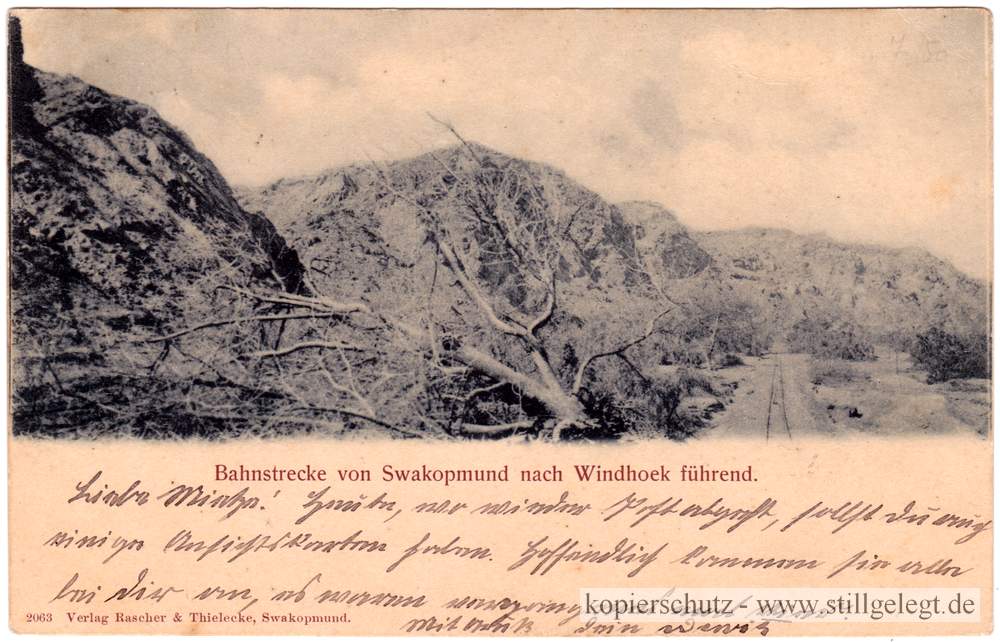 Bahnstrecke von Swakopmund nach Windhoek führend.
Liebe Mieke! Heute, wo wieder Post abgeht, sollst Du auch
einige Ansichtskarten haben. Hoffentlich kommen sie alle
bei Dir an, es waren
2063 Verlag Rascher & Thielecke, Swakopmund.
kopierschutz - www.stillgelegt.de
Dein